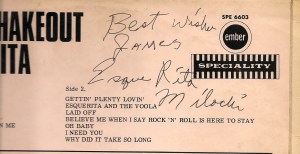 SPE 6603
HAKEOUT
ITA
Best Wishes
James
Esque Rita
Milochi
ember
SPECIALITY
Side 2.
GETTIN' PLENTY LOVIN'
ESQUERITA AND THE VOOLA
LAID OFF
BELIEVE ME WHEN I SAY ROCK 'N' ROLL IS HERE TO STAY
OH BABY
I NEED YOU
WHY DID IT TAKE SO LONG
N ME